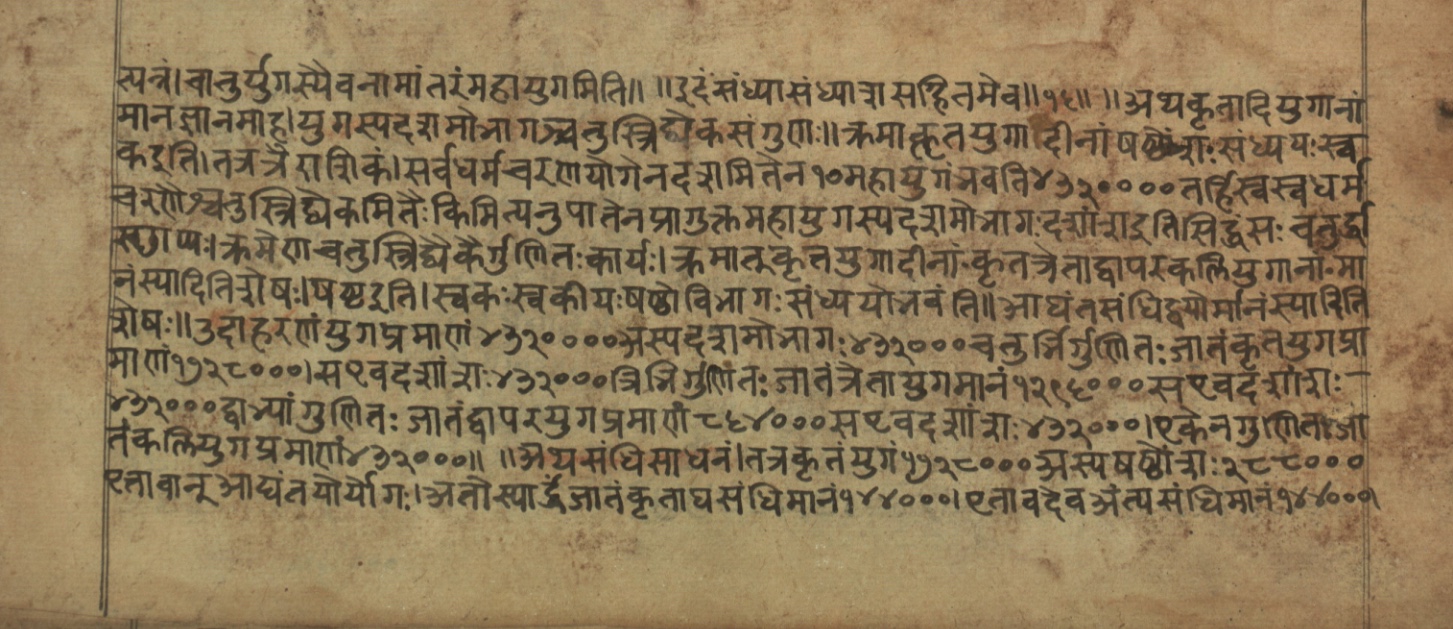 त्पन्नं।चातुर्युगस्यैवनामांतरंमहायुगमिति॥ ॥इदंसंध्यासंध्यांशसहितमेव॥१६॥ ॥अथकृतादियुगानां
मानज्ञानमाह।युगस्यदशमोभागश्चतुस्त्रिद्व्येकसंगुणः॥क्रमात्कृतयुगादीनांषष्ठोंशःसंध्ययःस्व
कइति।तत्रत्रैराशिकं।सर्वधर्मचरणयोगेनदशमितेन१०महायुगंभवति४३२००००तर्हिस्वस्वधर्म
चरणैश्चतुस्त्रिद्व्येकमितैःकिमित्यनुपातेनप्रागुक्तमहायुगस्यदशमोभागःदशांशइतिसिद्धंसःचतुर्द्धा
स्थाप्यः।क्रमेणचतुस्त्रिद्व्येकैर्गुणितःकार्यः।क्रमात्कृतयुगादीनांकृतत्रेताद्वापरकलियुगानांमा
नंस्यादितिशेषः।षष्ठइति।स्वकःस्वकीयःषष्ठोविभागःसंध्ययोभवंति॥आद्यंतसंधिद्वयोर्मानंस्यादिति
शेषः॥उदाहरणंयुगप्रमाणं४३२००००अस्यदशमोभागः४३२०००चतुर्भिर्गुणितःजातंकृतयुगप्र
माणं१७२८०००।सएवदशांशः४३२०००त्रिभिर्गुणितःजातंत्रेतायुगमानं१२९६०००सएवदशांशः
४३२०००द्वाभ्यांगुणितःजातंद्वापरयुगप्रमाणं८६४०००सएवदशांशः४३२०००।एकेनगुणितःजा
तंकलियुगप्रमाणं४३२०००॥ ॥अथसंधिसाधनं।तत्रकृतंयुगं१७२८०००अस्यषष्ठोंशः२८८०००
एतावान्आद्यंतयोर्योगः।अतोस्यार्द्धंजातंकृताद्यसंधिमानं१४४०००।एतावदेवअंत्यसंधिमानं१४४०००।